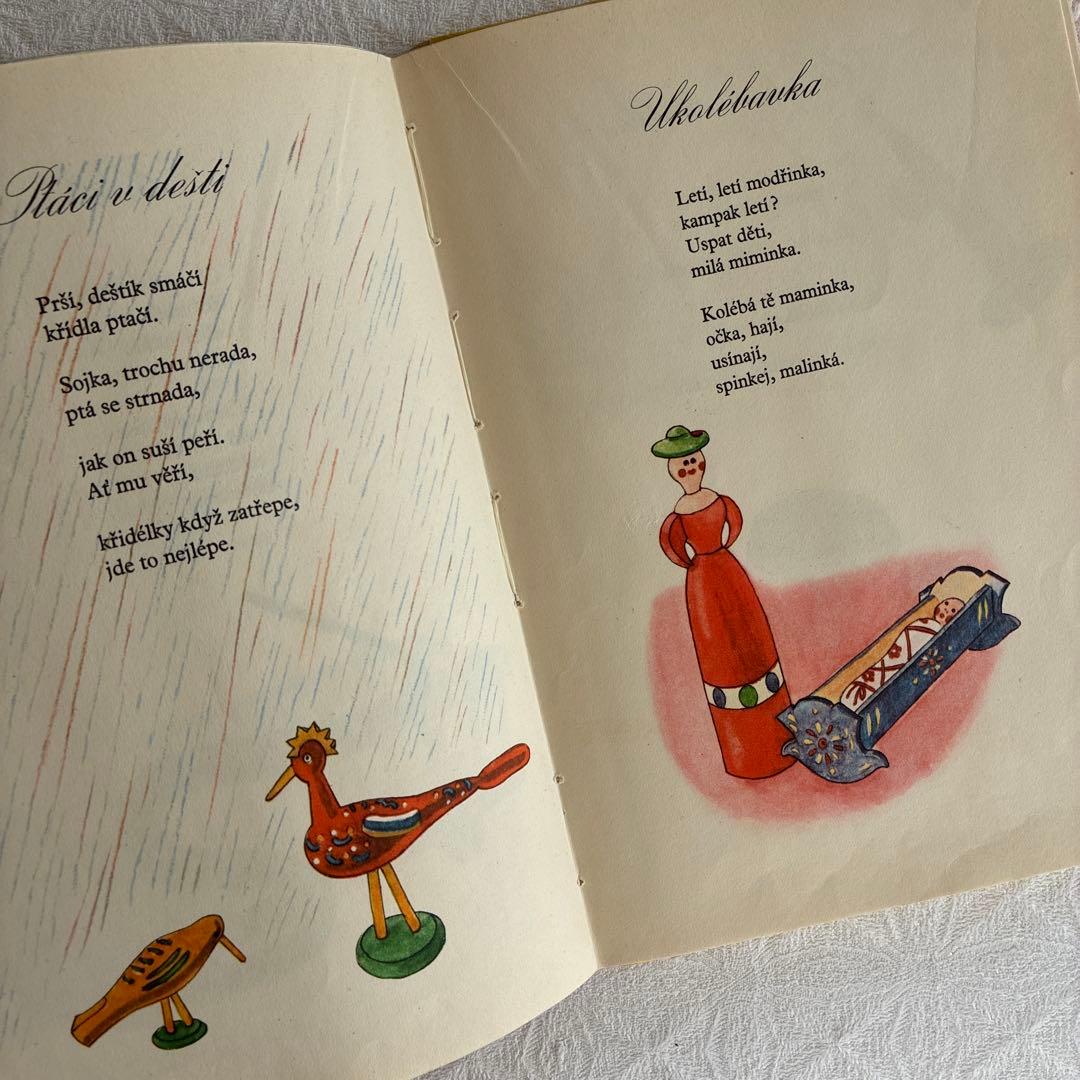 Ptáci v dešti
Prší, deštík smáčí
křídla ptačí.
Sojka, trochu nerada,
ptá se strnada,
jak on suší peří.
Ať mu věří,
křidélky když zatřepe,
jde to nejlépe.
Ukolébavka
Letí, letí modřinka,
kampak letí?
Uspat děti,
milá miminka.
Kolébá tě maminka,
očka, hají,
usínají,
spinkej, malinká.